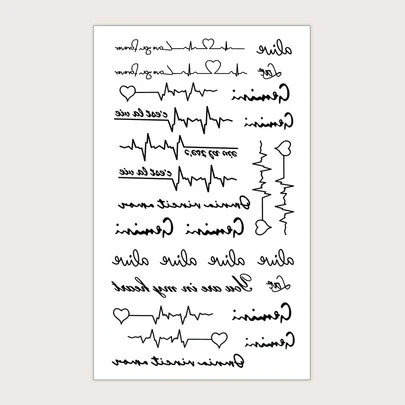 alive
Love
Gemini
Gemini c'est la vie
c'est la vie
Omnia vincit amor
Gemini Gemini
alive alive alive alive
Love You are in my heart
Gemini
Gemini
Omnia vincit amor